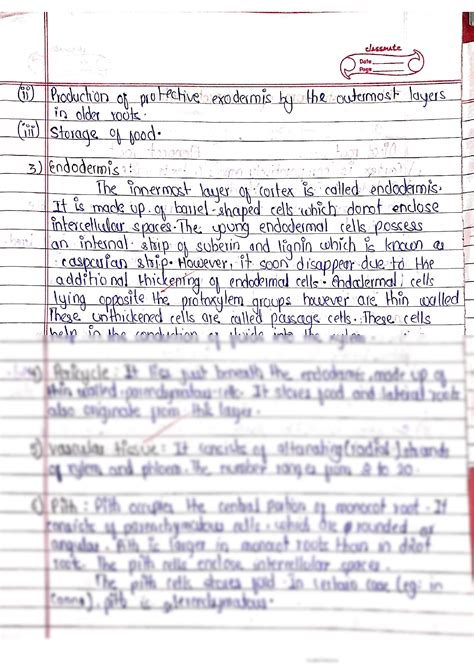 classmate
Date
Page
(ii) Production of protective exodermis by the outermost layers
in older roots.
(iii) Storage of food.
3) Endodermis :
The innermost layer of cortex is called endodermis.
It is made up of barrel-shaped cells which donot enclose
intercellular spaces. The young endodermal cells possess
an internal ship of suberin and lignin which is known as
casparian ship. However, it soon disappear due to the
additional thickening of endodermal cells. Endodermal cells
lying opposite the protoxylem groups however are thin walled
These unthickened cells are called passage cells. These cells
help in the conduction of fluids into the xylem.
4) Pericycle : It lies just beneath the endodermis, made up of
thin walled parenchymatous cells. It stores food and lateral roots
also originate from this layer.
5) vascular tissue : It consists of alternating (radial) strands
of xylem and phloem. The number ranges from 8 to 20.
Pith : Pith occupies the central portion of monocot root. It
consists of parenchymatous cells, which are rounded or
angular. Pith is larger in monocot roots than in dicot
root. The pith cells enclose intercellular spaces.
The pith cells stores food. In certain case (eg: in
Canna), pith is